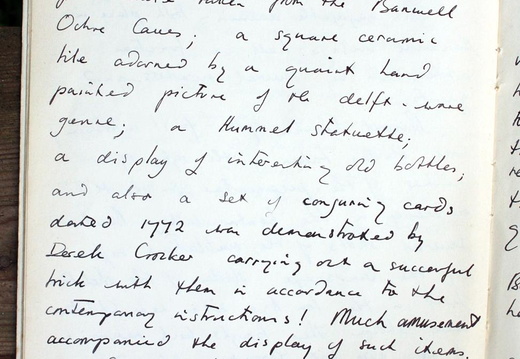 were taken from the Banwell
Ochre Caves; a square ceramic
tile adorned by a quaint hand
painted picture of the delft-ware
genre; a Hummel statuette;
a display of interesting old bottles;
and also a set of conjuring cards
dated 1772 was demonstrated by
Derek Crocker carrying out a succesful
trick with them in accordance to the
contemporary instructions! Much amusement
accompanied the display of such items.